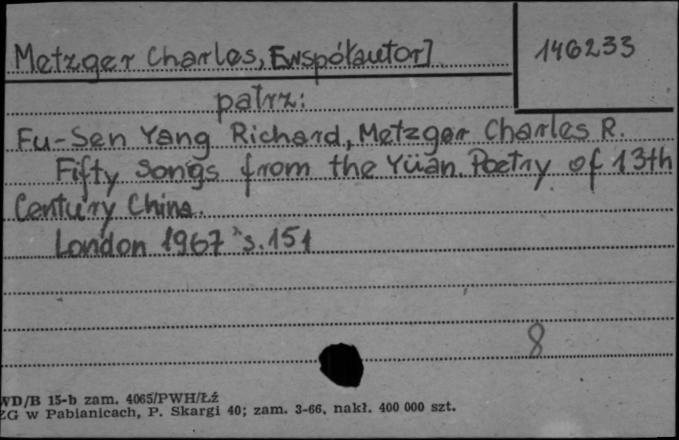 Metzger Charles, [współautor]
146233
patrz:
Fu-Sen Yang Richard, Metzger Charles R.
Fifty Songs from the Yüan Poetry of 13th
Century China.
London 1967 s. 151
8
WD/B 15-b zam. 4065/PWH/Łź
ZG w Pabianicach, P. Skargi 40; zam. 3-66, nakł. 400 000 szt.